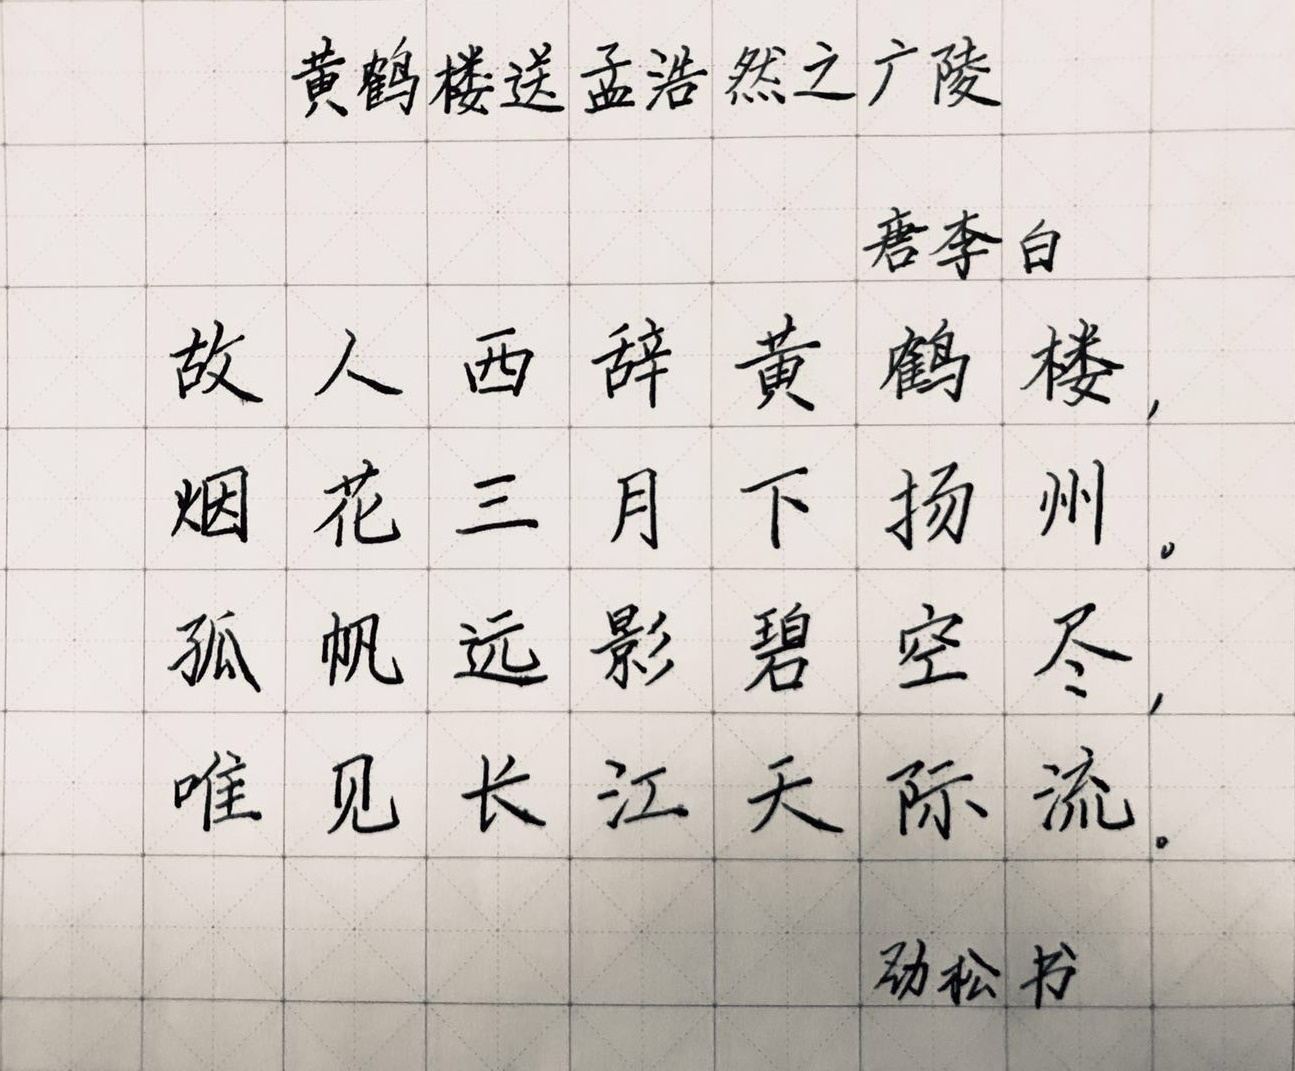 黄鹤楼送孟浩然之广陵
唐李白
故人西辞黄鹤楼,
烟花三月下扬州。
孤帆远影碧空尽,
唯见长江天际流。
劲松书